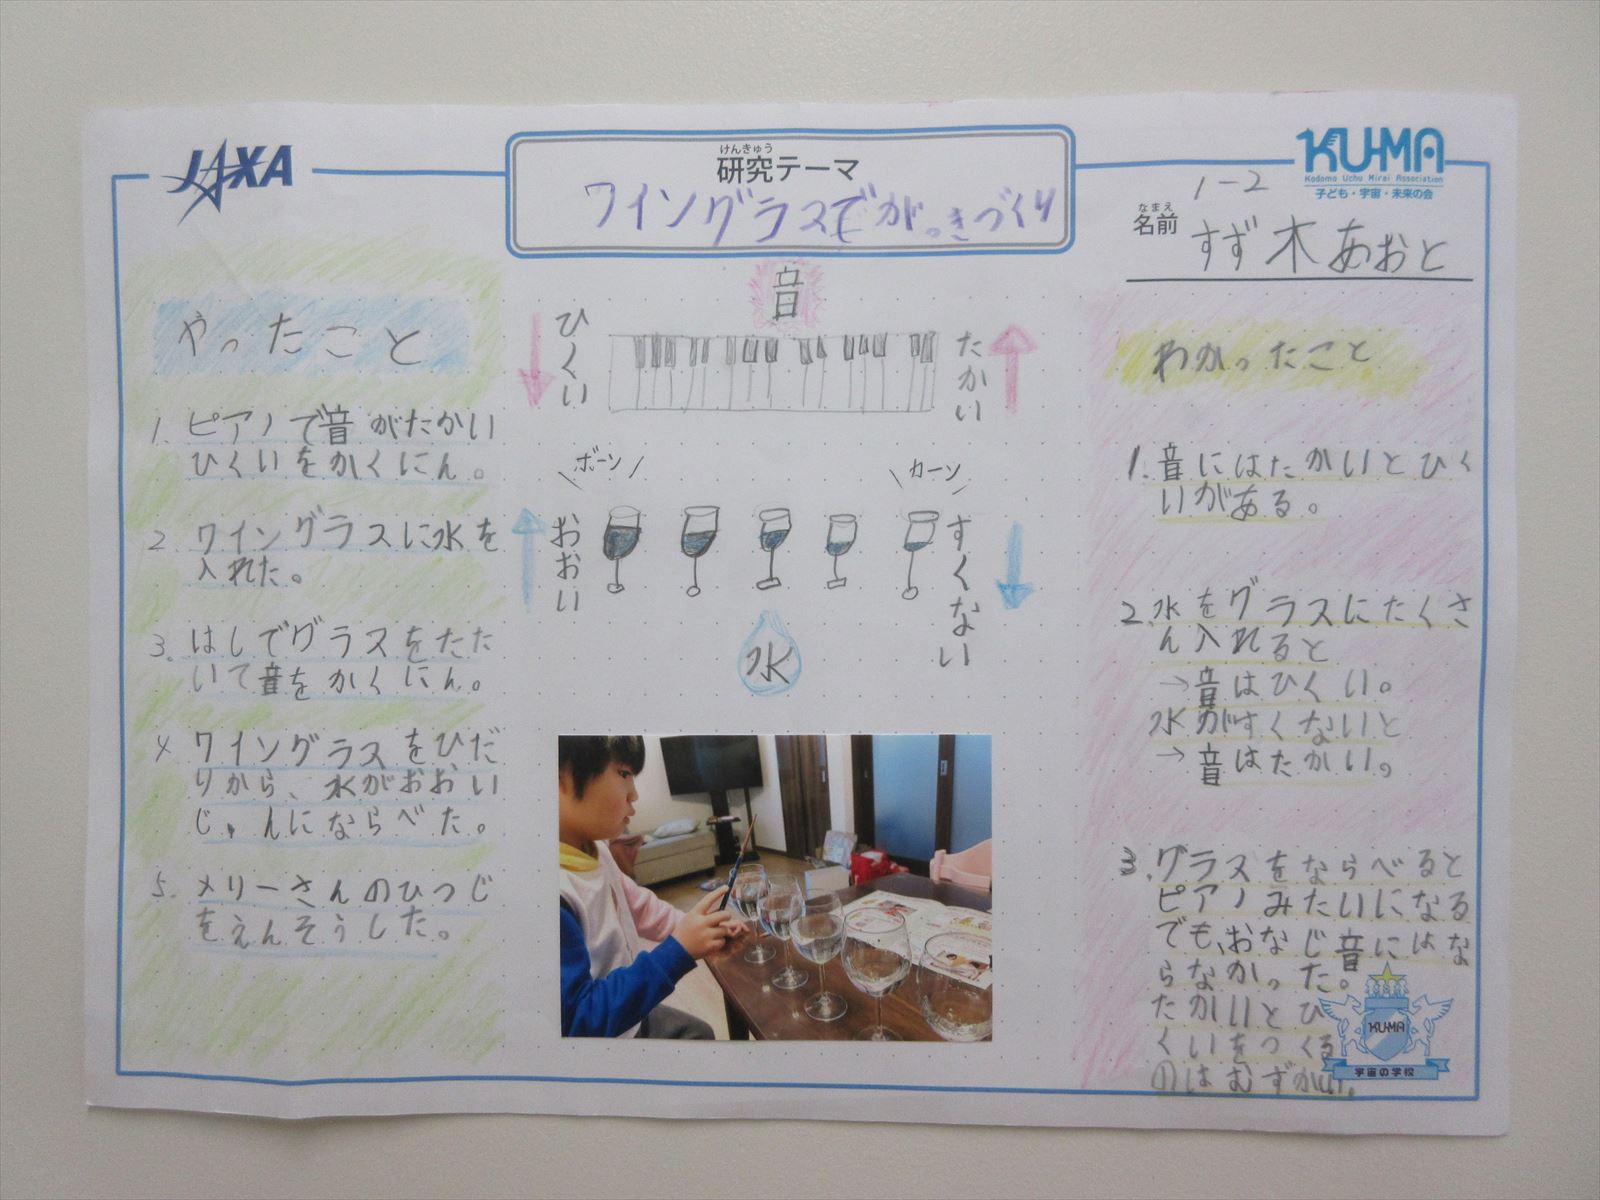 JAXA
けんきゅう
研究テーマ
ワイングラスでがっきづくり
KU-MA
Kodomo Uchu Mirai Association
子ども・宇宙・未来の会
1-2
なまえ
名前
すず木あおと
やったこと
1. ピアノで音がたかい
ひくいをかくにん。
2. ワイングラスに水を
入れた。
3. はしでグラスをたた
いて音をかくにん。
4 ワイングラスをひだ
りから、水がおおい
じゅんにならべた。
5. メリーさんのひつじ
をえんそうした。
音
ひくい
たかい
ボーン
カーン
おおい
すくない
水
わかったこと
1. 音にはたかいとひく
いがある。
2. 水をグラスにたくさ
ん入れると
→音はひくい。
水がすくないと
→音はたかい。
3. グラスをならべると
ピアノみたいになる
でも、おなじ音にはな
らなかった。
たかいとひ
くいをつくる
のはむずかしい。
KU-MA
宇宙の学校